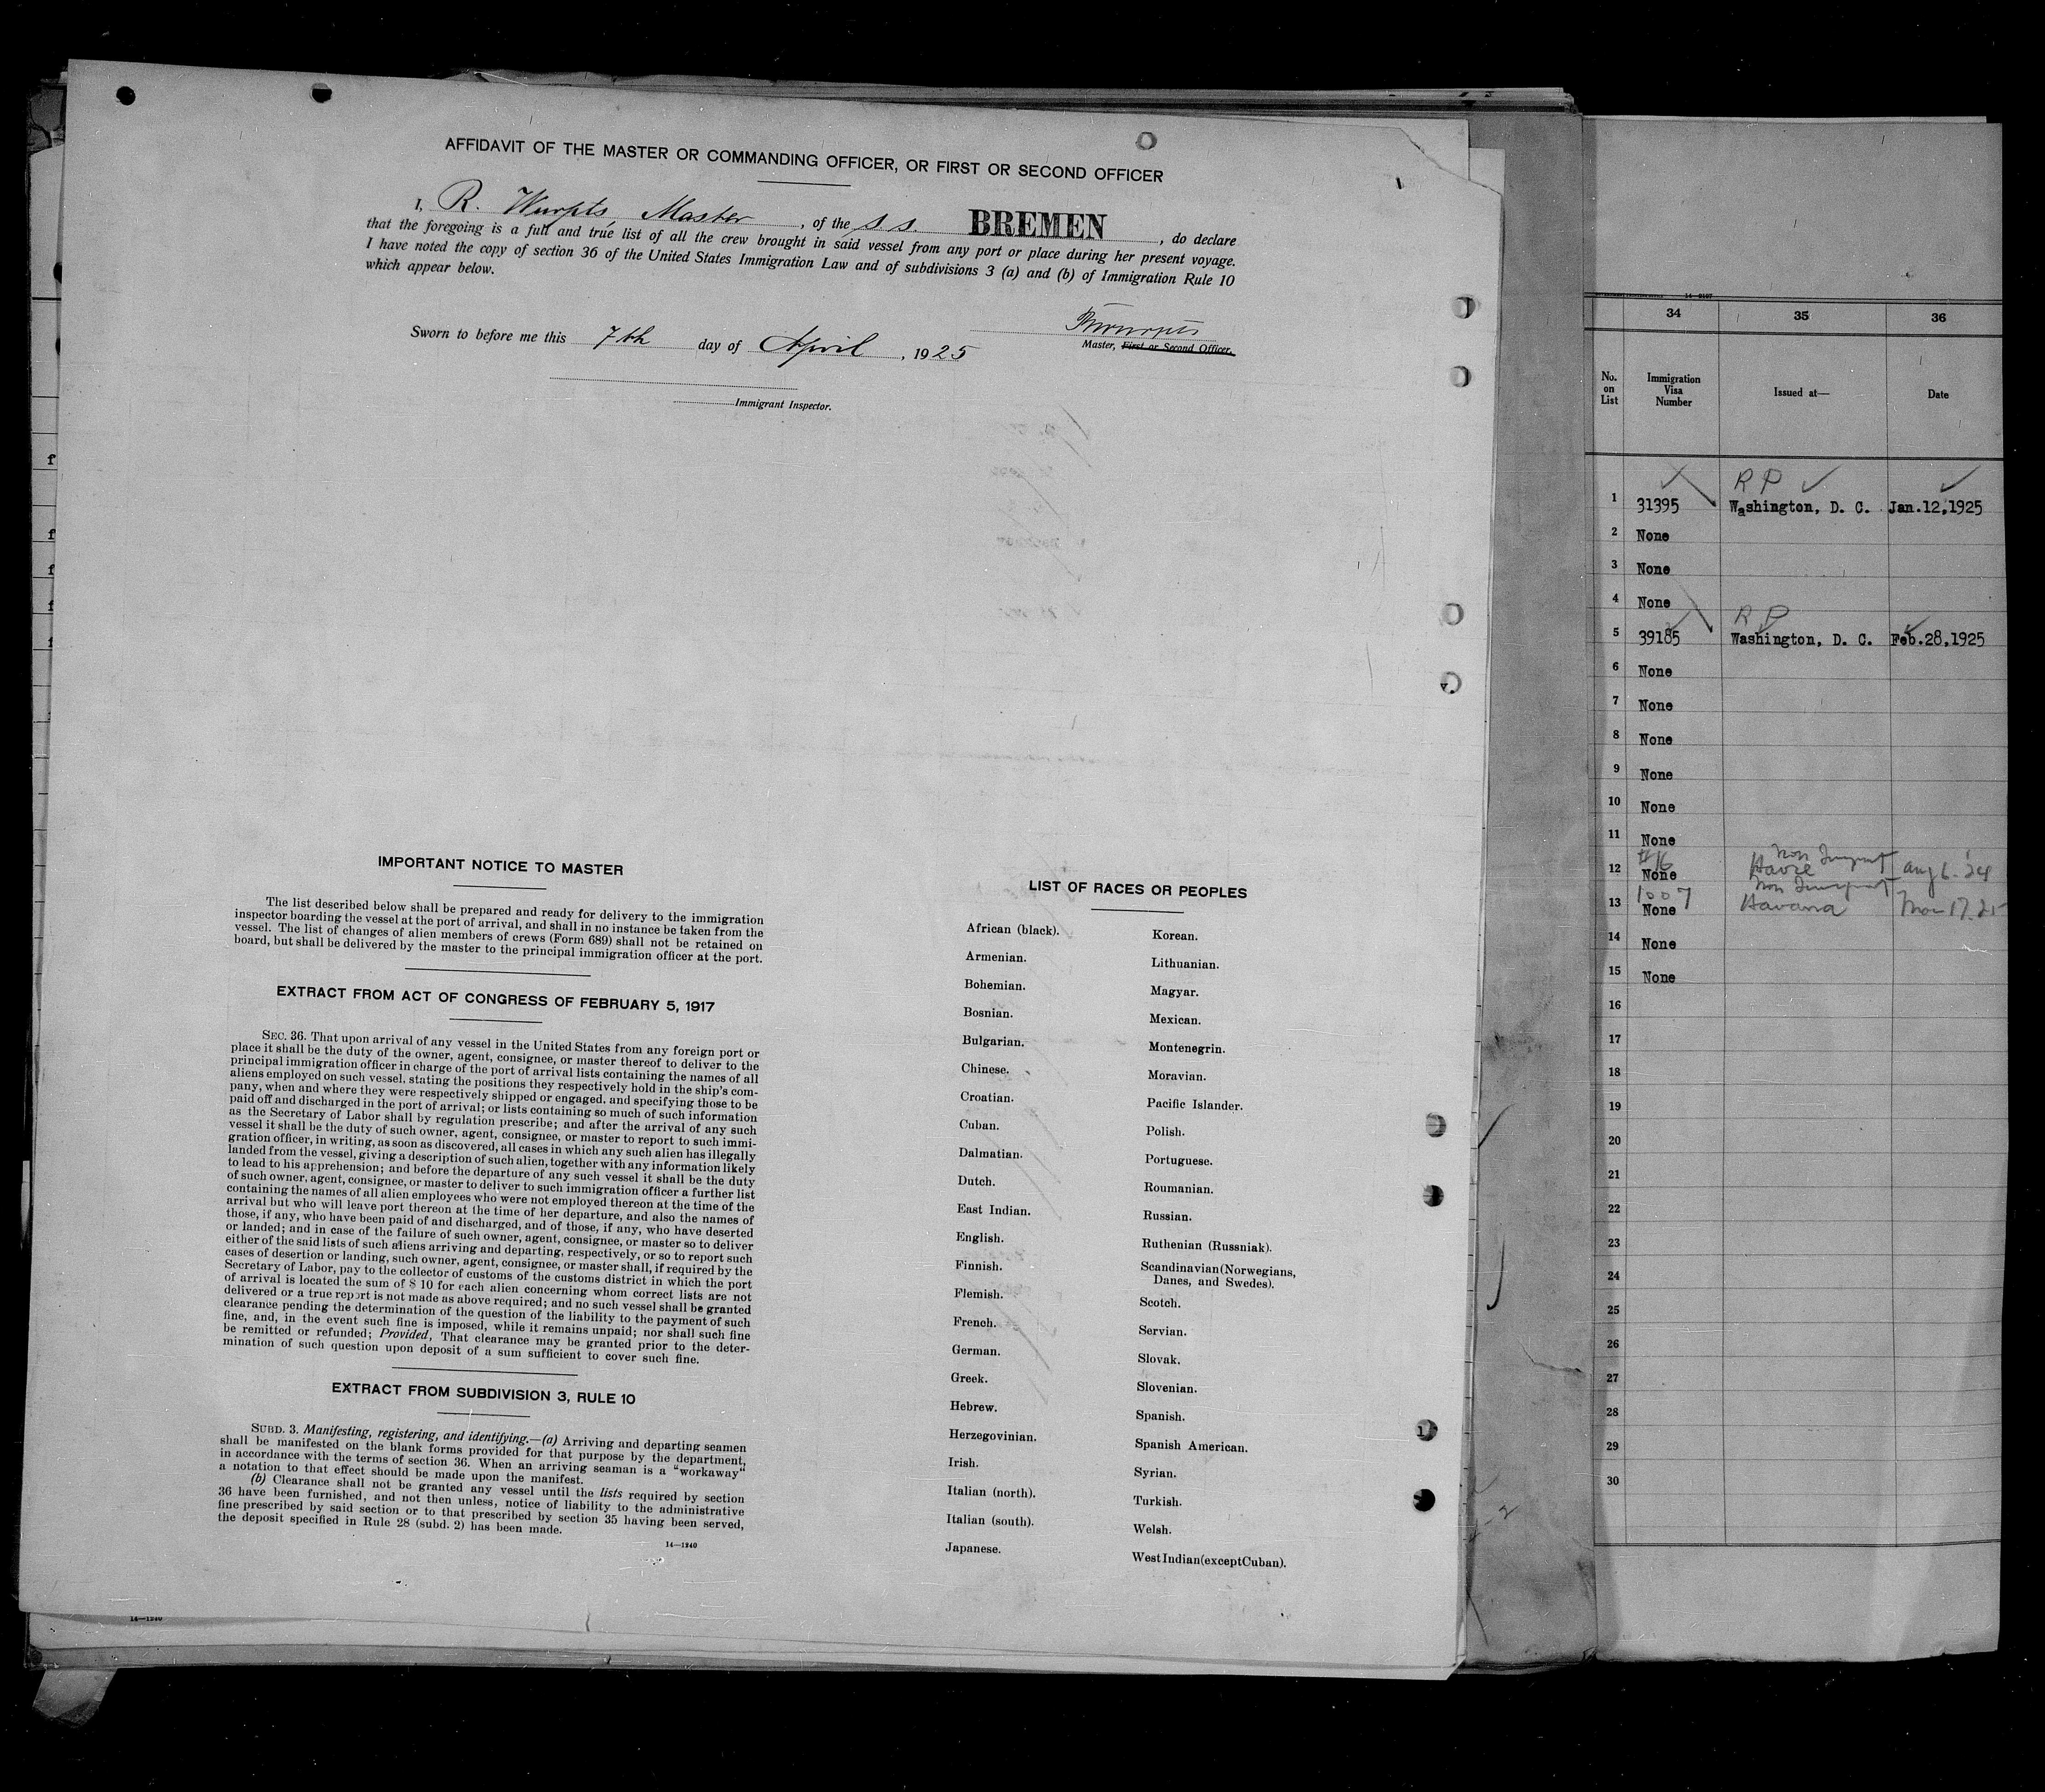 AFFIDAVIT OF THE MASTER OR COMMANDING OFFICER, OR FIRST OR SECOND OFFICER
I, R. Wurpts, Master, of the s.s. BREMEN, do declare
that the foregoing is a full and true list of all the crew brought in said vessel from any port or place during her present voyage.
I have noted the copy of section 36 of the United States Immigration Law and of subdivisions 3 (a) and (b) of Immigration Rule 10
which appear below.
RWurpts
Sworn to before me this 7th day of April, 1925
Master, First or Second Officer.
Immigrant Inspector.
IMPORTANT NOTICE TO MASTER
The list described below shall be prepared and ready for delivery to the immigration
inspector boarding the vessel at the port of arrival, and shall in no instance be taken from the
vessel. The list of changes of alien members of crews (Form 689) shall not be retained on
board, but shall be delivered by the master to the principal immigration officer at the port.
EXTRACT FROM ACT OF CONGRESS OF FEBRUARY 5, 1917
SEC. 36. That upon arrival of any vessel in the United States from any foreign port or
place it shall be the duty of the owner, agent, consignee, or master thereof to deliver to the
principal immigration officer in charge of the port of arrival lists containing the names of all
aliens employed on such vessel, stating the positions they respectively hold in the ship's com-
pany, when and where they were respectively shipped or engaged, and specifying those to be
paid off and discharged in the port of arrival; or lists containing so much of such information
as the Secretary of Labor shall by regulation prescribe; and after the arrival of any such
vessel it shall be the duty of such owner, agent, consignee, or master to report to such immi-
gration officer, in writing, as soon as discovered, all cases in which any such alien has illegally
landed from the vessel, giving a description of such alien, together with any information likely
to lead to his apprehension; and before the departure of any such vessel it shall be the duty
of such owner, agent, consignee, or master to deliver to such immigration officer a further list
containing the names of all alien employees who were not employed thereon at the time of the
arrival but who will leave port thereon at the time of her departure, and also the names of
those, if any, who have been paid of and discharged, and of those, if any, who have deserted
or landed; and in case of the failure of such owner, agent, consignee, or master so to deliver
either of the said lists of such aliens arriving and departing, respectively, or so to report such
cases of desertion or landing, such owner, agent, consignee, or master shall, if required by the
Secretary of Labor, pay to the collector of customs of the customs district in which the port
of arrival is located the sum of $ 10 for each alien concerning whom correct lists are not
delivered or a true report is not made as above required; and no such vessel shall be granted
clearance pending the determination of the question of the liability to the payment of such
fine, and, in the event such fine is imposed, while it remains unpaid; nor shall such fine
be remitted or refunded; Provided, That clearance may be granted prior to the deter-
mination of such question upon deposit of a sum sufficient to cover such fine.
EXTRACT FROM SUBDIVISION 3, RULE 10
SUBD. 3. Manifesting, registering, and identifying.—(a) Arriving and departing seamen
shall be manifested on the blank forms provided for that purpose by the department,
in accordance with the terms of section 36. When an arriving seaman is a "workaway"
a notation to that effect should be made upon the manifest.
(b) Clearance shall not be granted any vessel until the lists required by section
36 have been furnished, and not then unless, notice of liability to the administrative
fine prescribed by said section or to that prescribed by section 35 having been served,
the deposit specified in Rule 28 (subd. 2) has been made.
14—1240
LIST OF RACES OR PEOPLES
African (black).
Armenian.
Bohemian.
Bosnian.
Bulgarian.
Chinese.
Croatian.
Cuban.
Dalmatian.
Dutch.
East Indian.
English.
Finnish.
Flemish.
French.
German.
Greek.
Hebrew.
Herzegovinian.
Irish.
Italian (north).
Italian (south).
Japanese.
Korean.
Lithuanian.
Magyar.
Mexican.
Montenegrin.
Moravian.
Pacific Islander.
Polish.
Portuguese.
Roumanian.
Russian.
Ruthenian (Russniak).
Scandinavian (Norwegians,
Danes, and Swedes).
Scotch.
Servian.
Slovak.
Slovenian.
Spanish.
Spanish American.
Syrian.
Turkish.
Welsh.
West Indian (except Cuban).
14—1240
34 35 36
No. on List Immigration Visa Number Issued at— Date
R P
1 31395 Washington, D. C. Jan.12,1925
2 None
3 None
4 None
R P
5 39185 Washington, D. C. Feb.28,1925
6 None
7 None
8 None
9 None
10 None
11 None
#16 Non
12 None Havre Aug 6. 24
1007 Non
13 None Havana 17. 25
14 None
15 None
16
17
18
19
20
21
22
23
24
25
26
27
28
29
30